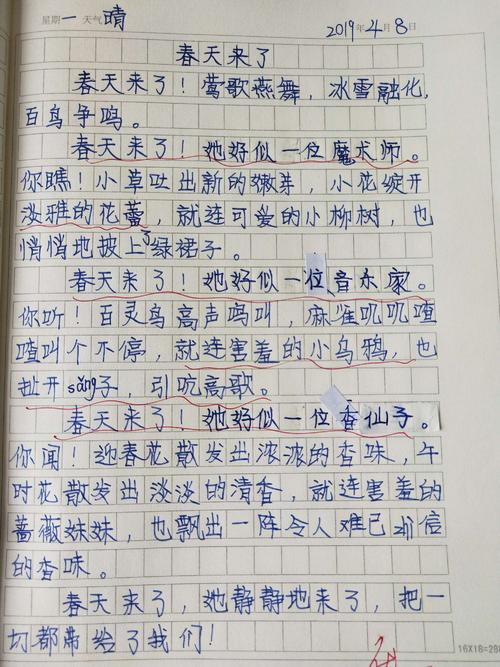 星期一 天气 晴 2019年4月8日
春天来了
春天来了！莺歌燕舞，冰雪融化，
百鸟争鸣。
春天来了！她好似一位魔术师。
你瞧！小草吐出新的嫩芽，小花绽开
淡雅的花蕾，就连可爱的小柳树，也
悄悄地披上了绿裙子。
春天来了！她好似一位音乐家。
你听！百灵鸟高声鸣叫，麻雀叽叽喳
喳叫个不停，就连害羞的小乌鸦，也
扯开sǎng子，引吭高歌。
春天来了！她好似一位香仙子。
你闻！迎春花散发出浓浓的香味，午
时花散发出淡淡的清香，就连害羞的
蔷薇妹妹，也飘出一阵令人难已信
的香味。
春天来了，她静静地来了，把一
切都带给了我们！
16X18=28